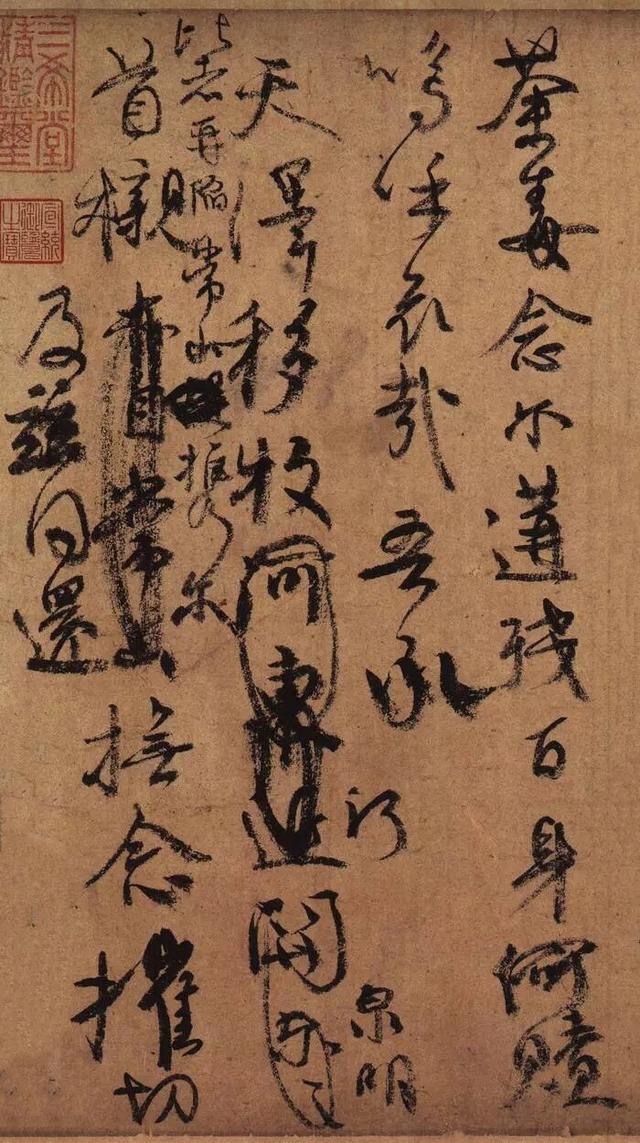 荼毒念尔遘殘百身何贖
嗚呼哀哉吾承
泉明
天澤移牧河東近河關
比者再陷常山攜尔
首櫬常山撫念摧切
及茲同還
三希堂
精鑑璽